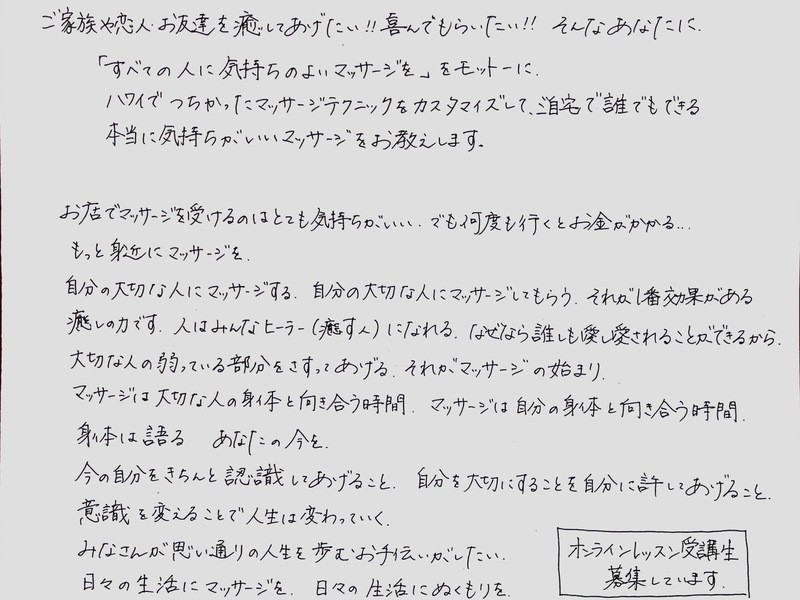 ご家族や恋人・お友達を癒してあげたい!!喜んでもらいたい!! そんなあなたに.
「すべての人に気持ちのよいマッサージを」をモットーに.
ハワイでつちかったマッサージテクニックをカスタマイズして、ご自宅で誰でもできる
本当に気持ちがいいマッサージをお教えします。
お店でマッサージを受けるのはとても気持ちがいい. でも何度も行くとお金がかかる...
もっと身近にマッサージを.
自分の大切な人にマッサージする. 自分の大切な人にマッサージしてもらう. それが1番効果がある
癒しの力です. 人はみんなヒーラー(癒す人)になれる. なぜなら誰しも愛し愛されることができるから.
大切な人の弱っている部分をさすってあげる. それがマッサージの始まり.
マッサージは大切な人の身体と向き合う時間. マッサージは自分の身体と向き合う時間.
身体は語る あなたの今を.
今の自分をきちんと認識してあげること. 自分を大切にすることを自分に許してあげること.
意識を変えることで人生は変わっていく.
みなさんが思い通りの人生を歩むお手伝いがしたい.
日々の生活にマッサージを. 日々の生活にぬくもりを.
オンラインレッスン受講生
募集しています.